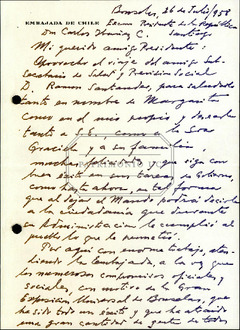 Bruselas, 26 de Julio/958
EMBAJADA DE CHILE
Excmo Presidente de la República
Dn Carlos Ibáñez C. Santiago
Mi querido amigo Presidente:
Aprovecho el viaje del amigo Sub-
Secretario de Salud y Previsión Social
D. Ramon Santander, para saludarlo
tanto en nombre de Margarita
como en el mio propio y desearle
tanto a S.E. como a la Sra
Graciela y a su familia,
mucha felicidad y que siga con
buen éxito en sus tareas de Gobierno,
como hasta ahora, en tal forma
que al dejar el Mando podrá decirle
a la ciudadanía que durante
su Administración le cumplió al
pueblo lo que le prometió.
Por aquí con enorme trabajo, aten-
diendo la Embajada, a la vez que
los numerosos compromisos oficiales y
sociales, con motivo de la Gran
Exposición Universal de Bruselas, que
ha sido todo un éxito y que ha atraído
una gran cantidad de gente de todos